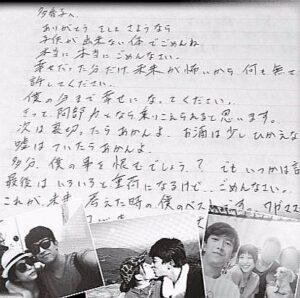 多香子へ
ありがとう そして さようなら
子供が出来ない体でごめんね
本当に本当にごめんなさい。
幸せだった分だけ未来が怖いから 何も無
許してください。
僕の分まで幸せになってください
きっと 阿部 力となら乗りこえられると思います。
次は裏切ったらあかんよ お酒は少しひかえな
嘘はついたらあかんよ。
多分、僕の事を恨むでしょう?でもいつかは
最後はいろいろと重荷になるけど、ごめんなさい。
これが、未来 考えた時の僕のベストです。